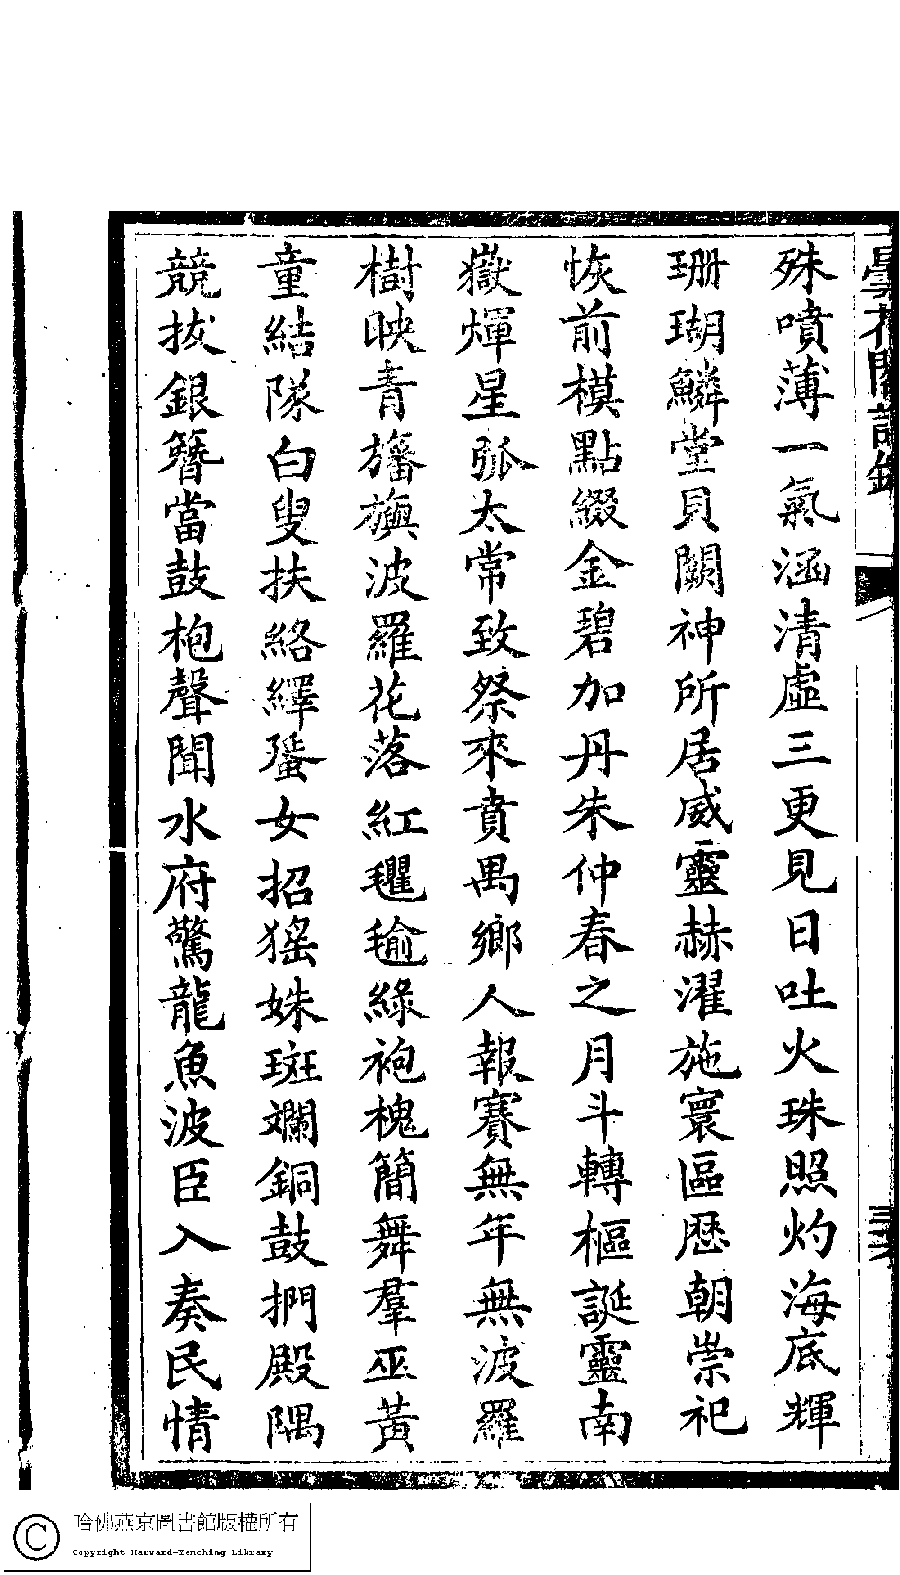 曇花閣詩鈔
三六
殊噴薄一氣涵清虛三更見日吐火珠照灼海底輝
珊瑚鱗堂貝闕神所居威靈赫濯施寰區歴朝崇祀
恢前模點綴金碧加丹朱仲春之月斗轉樞誕靈南
嶽煇星弧太常致祭來賁禺鄉人報賽無年無波羅
樹映青旛旟波羅花落紅氍毹綠袍槐簡舞羣巫黃
童結隊白叟扶絡繹蜑女招猺姝斑斕銅鼓捫殿隅
競拔銀簪當鼓枹聲聞水府驚龍魚波臣入奏民情
哈佛燕京圖書館版權所有
Copyright Harvard-Yenching Library